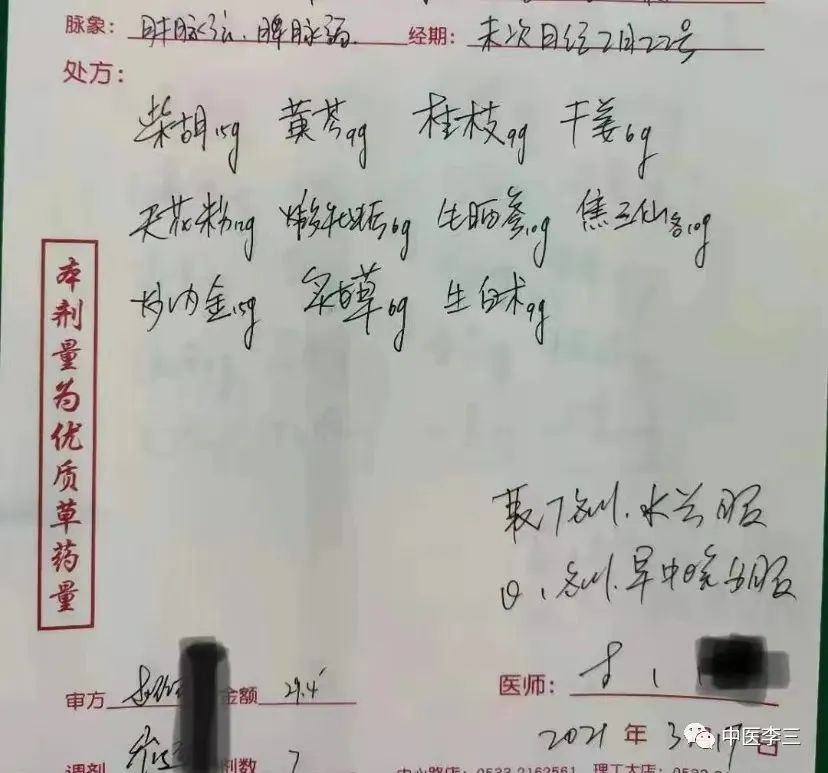 脉象：肝脉弦、脾脉弱. 经期：末次月经2月22号
处方：
柴胡15g 黄芩9g 桂枝9g 干姜6g
天花粉12g 煅牡蛎6g 生晒参10g 焦三仙各10g
炒内金15g 炙甘草6g 生白术9g
本剂量为优质草药量
7剂.水煎服
日1剂.早中晚分服
审方 金额 29.4
医师：
2021年3月19日
调剂 剂数 7
中医李三
中心路店：0533-2162561 理工大店：0533-2